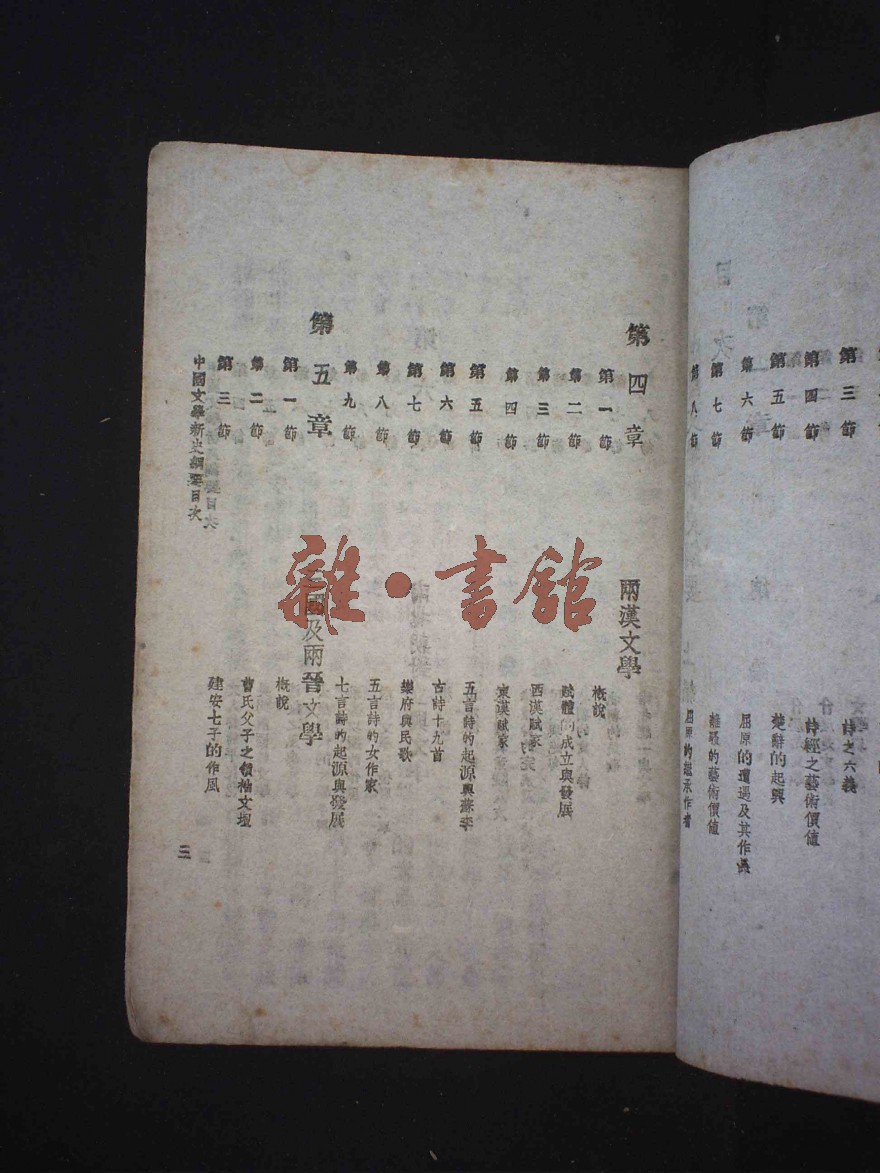 第三節 詩之六義
第四節 詩經之藝術價值
第五節 楚辭的起興
第六節 屈原的遭遇及其作品
第七節 離騷的藝術價值
第八節 屈原的繼承作者
第四章 兩漢文學
第一節 概說
第二節 賦體的成立與發展
第三節 西漢賦家
第四節 東漢賦家
第五節 五言詩的起源與蘇李
第六節 古詩十九首
第七節 樂府與民歌
第八節 五言詩的女作家
第九節 七言詩的起源與發展
第五章 國及兩晉文學
第一節 概說
第二節 曹氏父子之領袖文壇
第三節 建安七子的作風
中國文學新史綱要目次
三
雜·書館